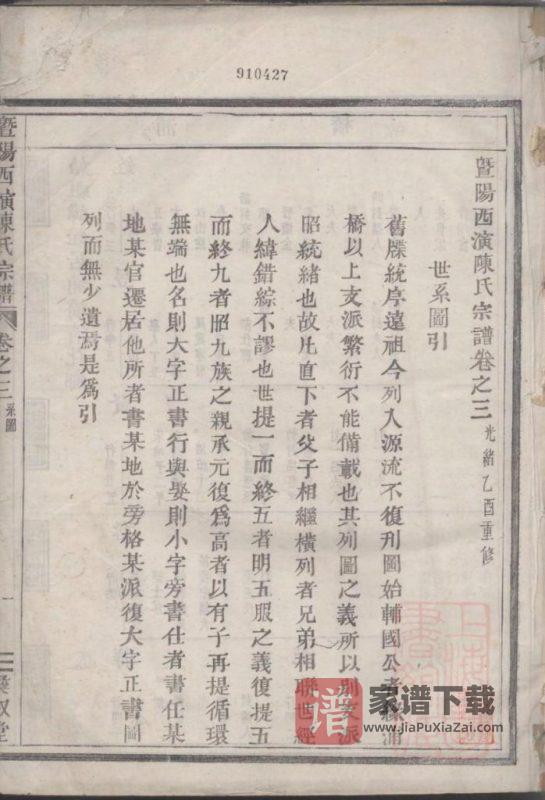 910427
暨陽西演陳氏宗譜卷之三 光緒乙酉重修
世系圖引
舊牒統序遠祖今列入源流不復刊圖始輔國公者緣浦
橋以上支派繁衍不能備載也其列圖之義所以別支派
昭統緒也故凡直下者父子相繼橫列者兄弟相聯世經
人緯錯綜不謬也世提一而終五者明五服之義復提五
而終九者昭九族之親承元復為高者以有子再提循環
無端也名則大字正書行與娶則小字旁書仕者書任某
地某官遷居他所者書某地於旁格某派復大字正書圖
列而無少遺焉是為引
暨陽西演陳氏宗譜 卷之三 系圖 一
譜 家谱下载
www.JiaPuXiaZai.com